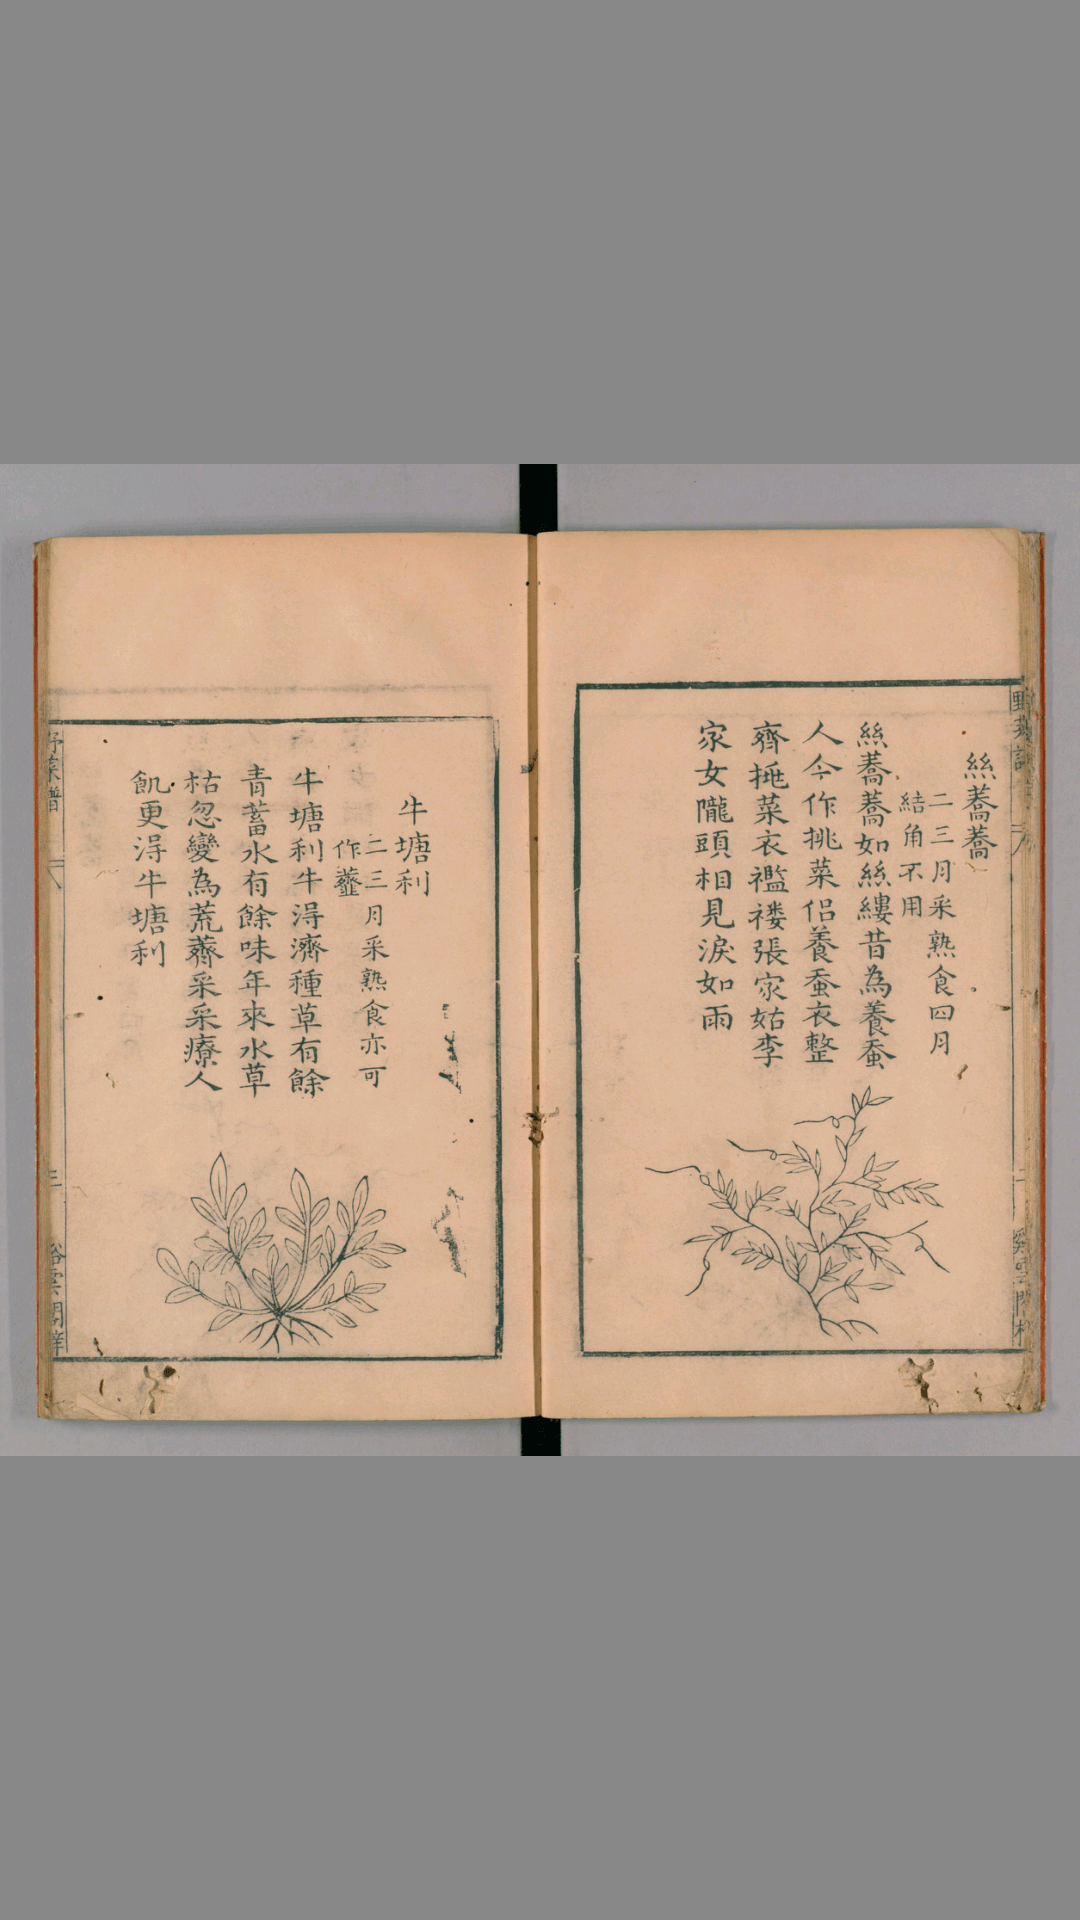 絲蕎蕎
二三月采熟食四月
結角不用
絲蕎蕎如絲縷昔為養蚕
人今作挑菜侣養蚕衣整
齊挑菜衣襤褸張家姑李
家女隴頭相見淚如雨
牛塘利
二三月采熟食亦可
作虀
牛塘利牛淂濟種草有餘
青蓄水有餘味年來水草
枯忽變為荒薺采采療人
飢更淂牛塘利
野菜譜
八